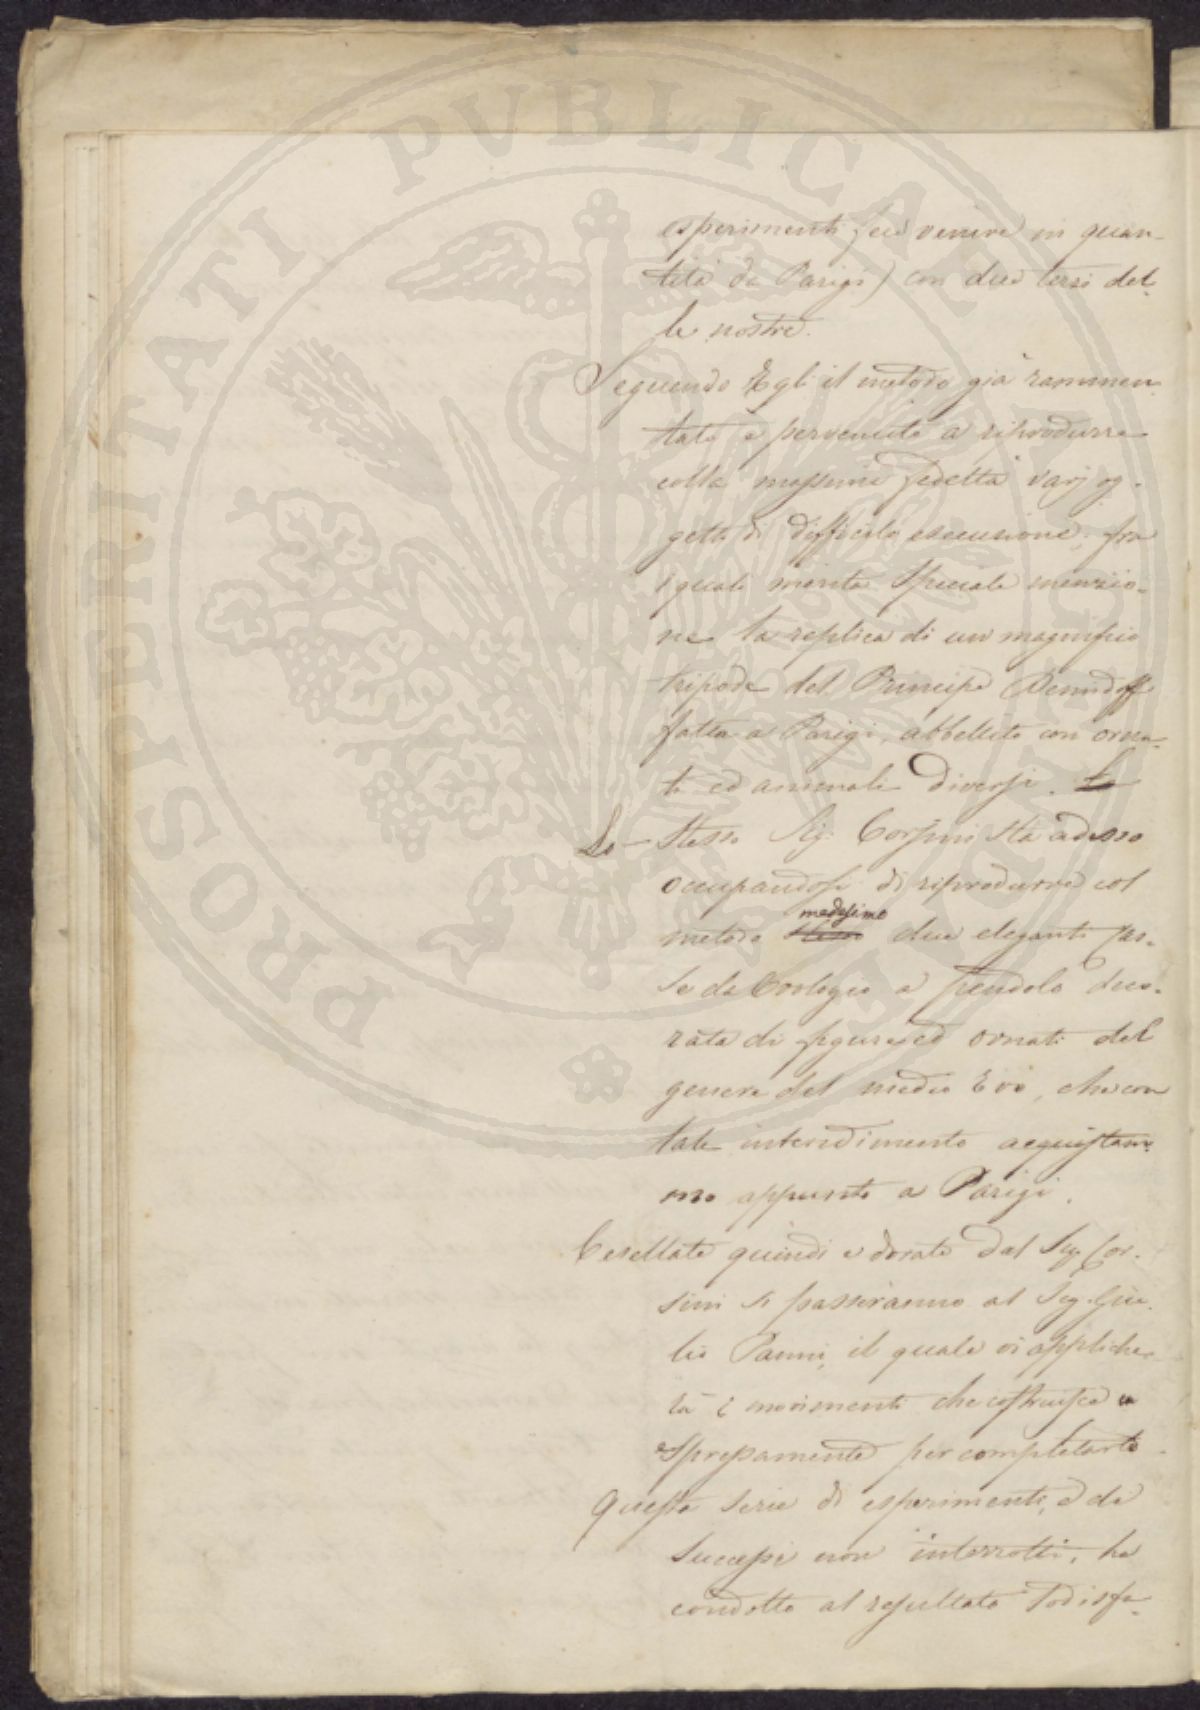 PROSPERITATI PUBLICAE AUGENDAE
esperimenti fece venire in quan-
tità da Parigi) con due terzi del-
le nostre.
Seguendo Egli il metodo già rammen-
tato è pervenuto a riprodurre
colla massima fedeltà varj og-
getti di difficile esecuzione, fra
i quali merita speciale menzio-
ne la replica di un magnifico
tripode del Principe Demidoff
fatta a Parigi, abbellito con orna-
ti ed animali diversi. Lo
Lo - stesso Sig. Corsini stà adesso
occupandosi di riprodurre col
metodo stesso medesimo due eleganti cas-
se da Orologio a pendolo deco-
rate di figure ed ornati del
genere del medio Evo, che con
tale intendimento acquistam-
mo appunto a Parigi.
Cesellate quindi e dorate dal Sig. Cor-
sini si passeranno al Sig. Giu-
lio Panni, il quale vi appliche-
rà i movimenti che costruisce
espressamente per completarle.
Questa serie di esperimenti, e da
successi non interrotti, ha
condotto al resultato sodisfa-